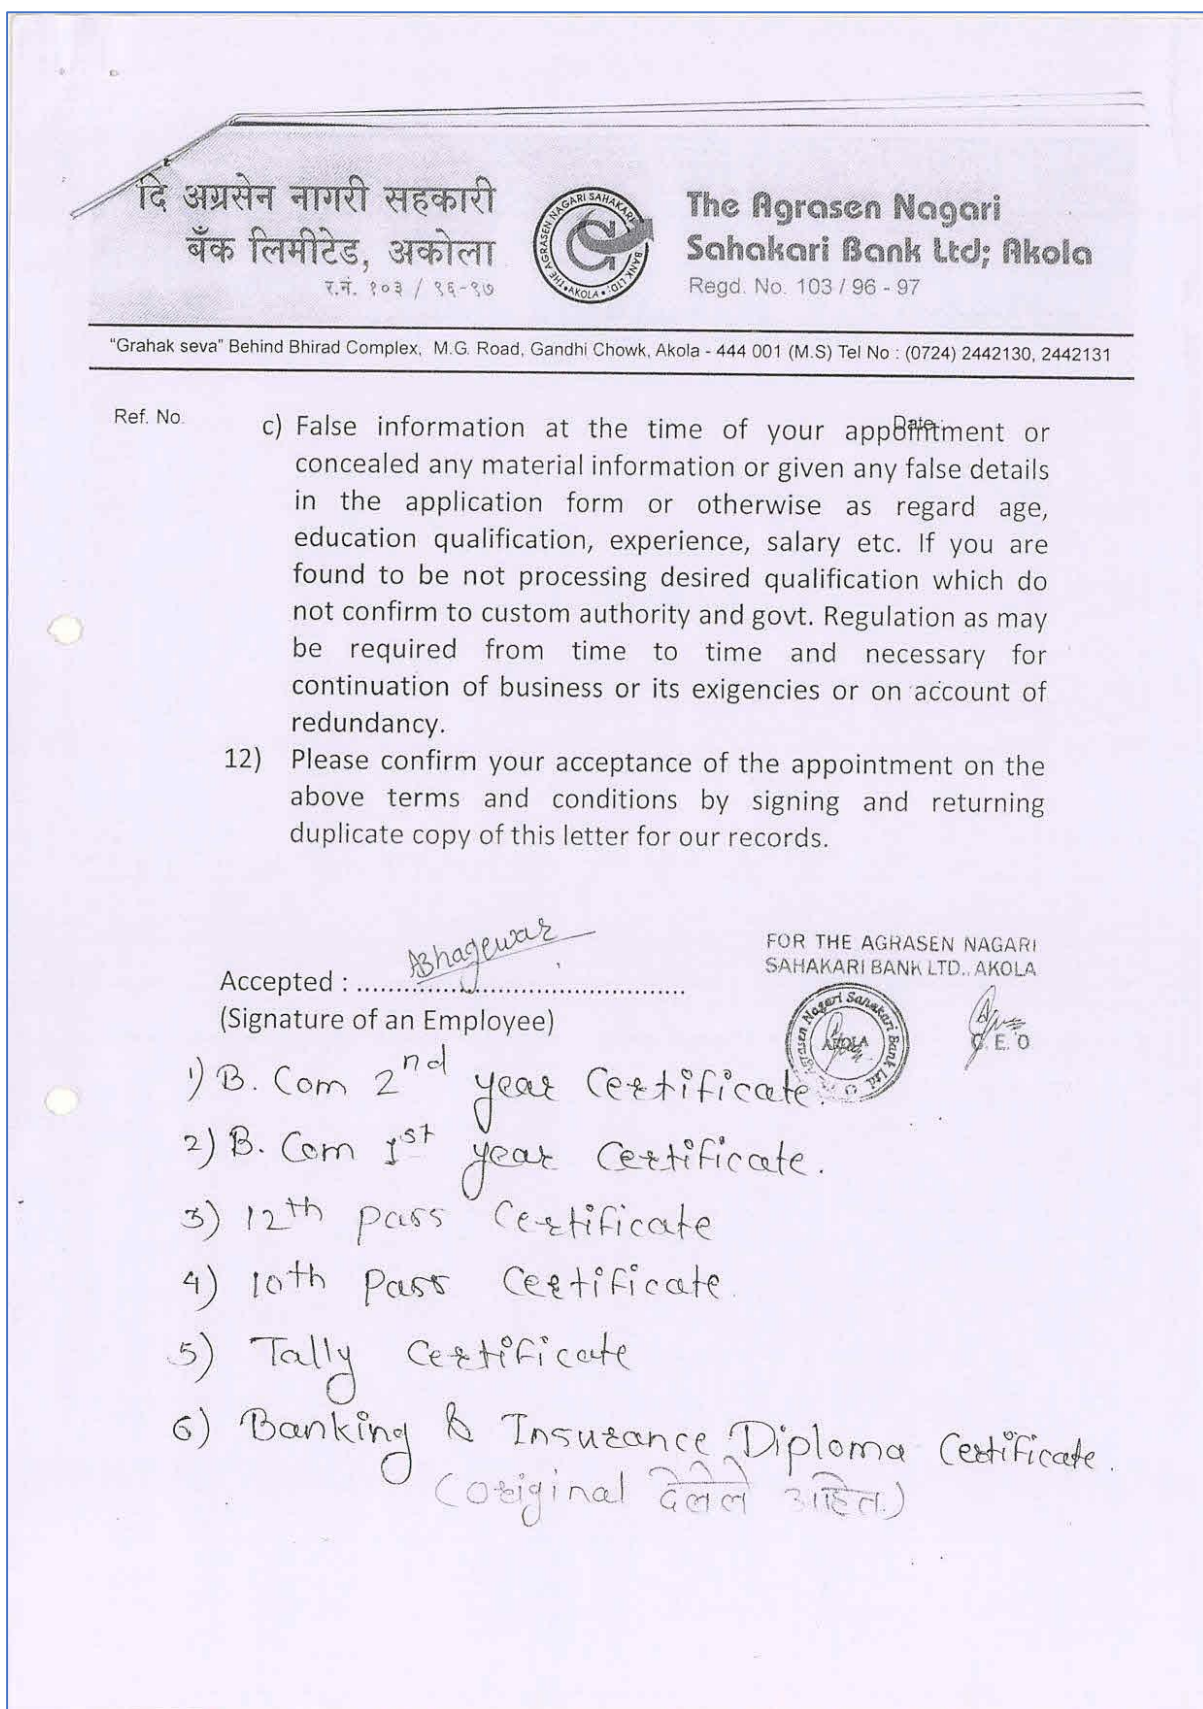 दि अग्रसेन नागरी सहकारी
बँक लिमीटेड, अकोला
र.नं. १०३ / ९६-९७
THE AGRASEN NAGARI SAHAKARI BANK LTD. AKOLA
The Agrasen Nagari
Sahakari Bank Ltd; Akola
Regd. No. 103 / 96 - 97
"Grahak seva" Behind Bhirad Complex, M.G. Road, Gandhi Chowk, Akola - 444 001 (M.S) Tel No : (0724) 2442130, 2442131
Ref. No.
Date :
c) False information at the time of your appointment or
concealed any material information or given any false details
in the application form or otherwise as regard age,
education qualification, experience, salary etc. If you are
found to be not processing desired qualification which do
not confirm to custom authority and govt. Regulation as may
be required from time to time and necessary for
continuation of business or its exigencies or on account of
redundancy.
12) Please confirm your acceptance of the appointment on the
above terms and conditions by signing and returning
duplicate copy of this letter for our records.
ABhagewar
Accepted : ..........................................
(Signature of an Employee)
FOR THE AGRASEN NAGARI
SAHAKARI BANK LTD., AKOLA
Agrasen Nagari Sahakari Bank Ltd.
AKOLA
C.E.O
1) B. Com 2nd year Certificate.
2) B. Com 1st year Certificate.
3) 12th pass Certificate
4) 10th Pass Certificate.
5) Tally Certificate
6) Banking & Insurance Diploma Certificate.
(original दिलेले आहेत.)